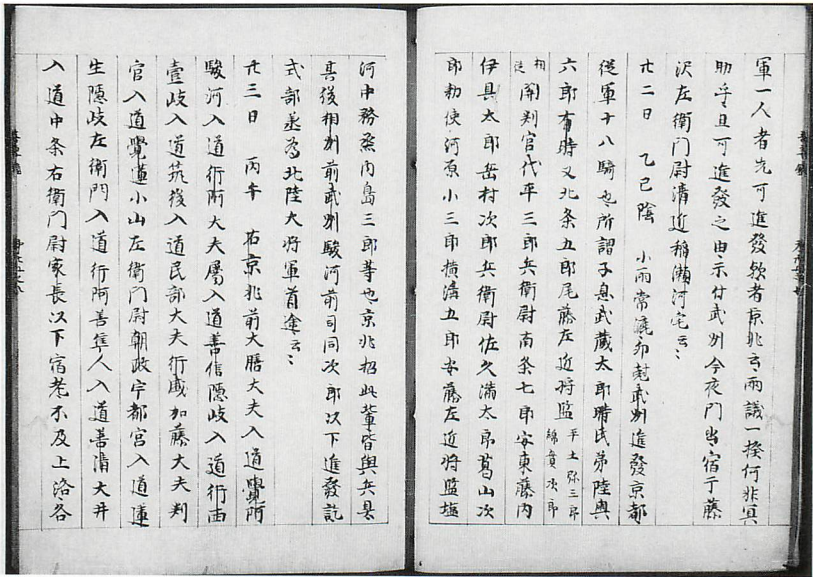 軍一人者先可進發欤者京兆云兩議一揆何非冥
助乎早可進發之由示付武州今夜門出宿于藤
沢左衛門尉清近稲瀬河宅云〻
廿二日　乙巳陰　小雨常灑卯尅武州進發京都
從軍十八騎也所謂子息武藏太郎時氏弟陸奥
六郎有時又北条五郎尾藤左近将監 平土弥三郎 綿貫次郎
相從 関判官代平三郎兵衛尉南条七郎安東藤内
伊具太郎岳村次郎兵衛尉佐久満太郎葛山次
郎勅使河原小三郎横溝五郎安藤左近将監塩
河中務丞内島三郎等也京兆招此輩皆與兵具
其後相州前武州駿河前司同次郎以下進發訖
式部丞為北陸大将軍首途云〻
廿三日　丙午　右京兆前大膳大夫入道覺阿
駿河入道行阿大夫属入道善信隠岐入道行西
壹岐入道筑後入道民部大夫行盛加藤大夫判
官入道覺蓮小山左衛門尉朝政宇都宮入道蓮
生隠岐左衛門入道行阿善隼人入道善清大井
入道中条右衛門尉家長以下宿老不及上洛各